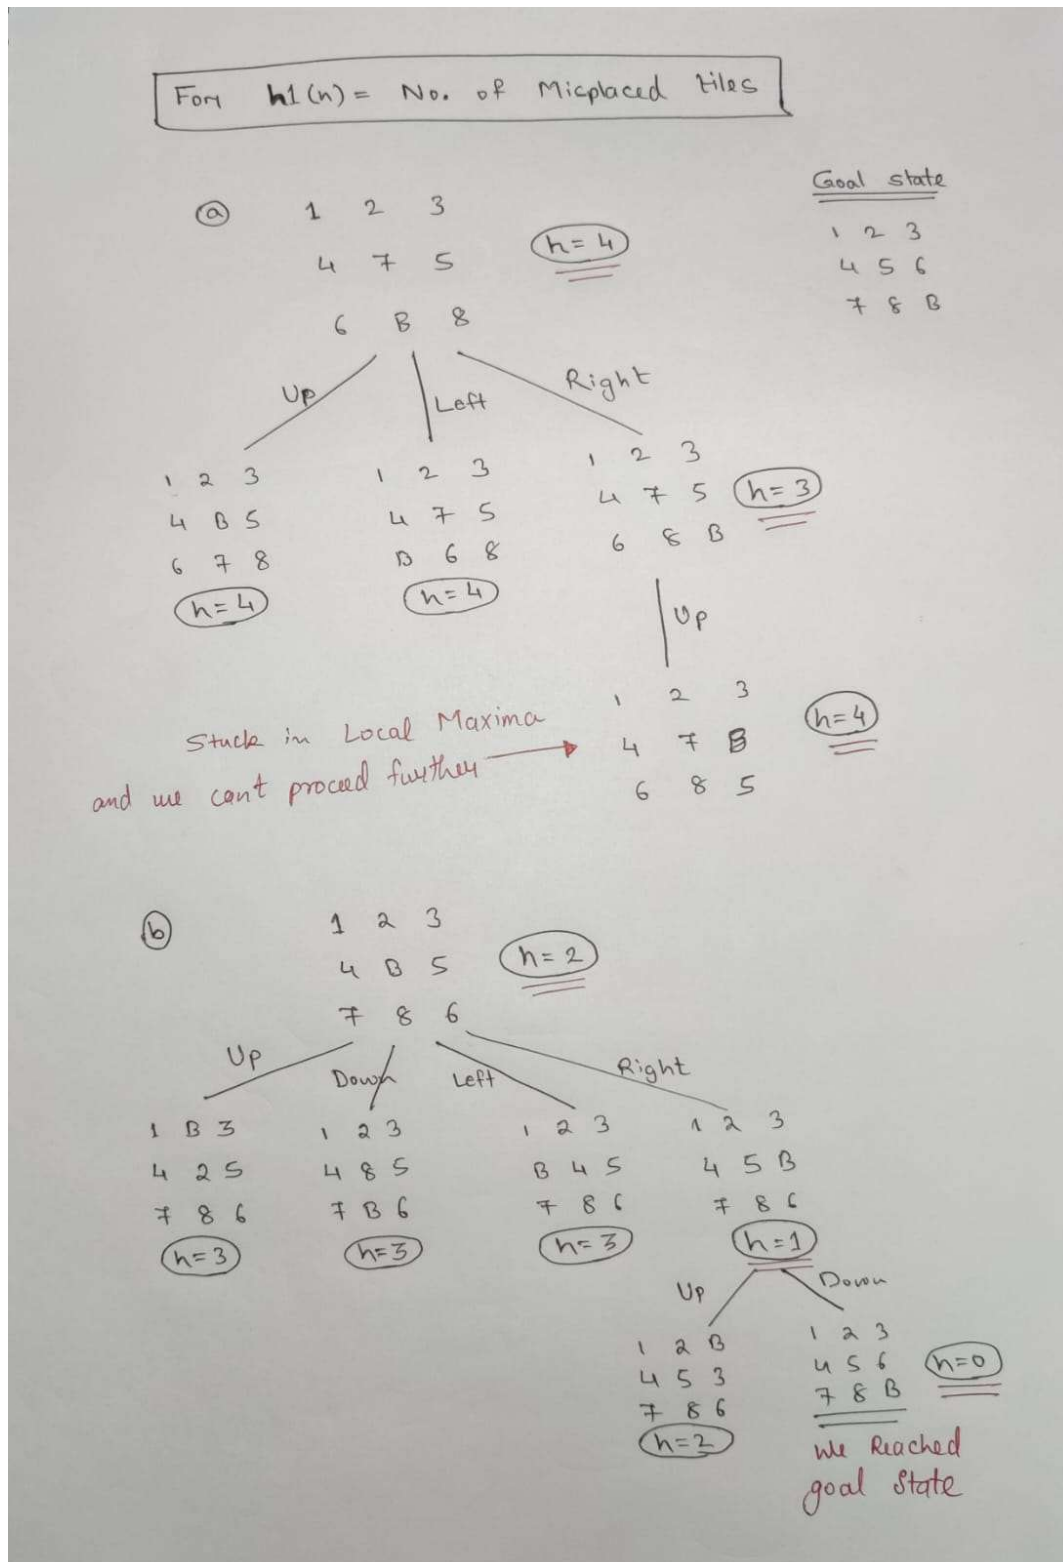 For h1(n) = No. of Micplaced tiles
Goal state
1 2 3
4 5 6
7 8 B
(a) 1 2 3
4 7 5
6 B 8
h=4
Up Left Right
1 2 3
4 B 5
6 7 8
h=4
1 2 3
4 7 5
B 6 8
h=4
1 2 3
4 7 5
6 8 B
h=3
Up
1 2 3
4 7 B
6 8 5
h=4
Stuck in Local Maxima
and we can't proceed further
(b) 1 2 3
4 B 5
7 8 6
h=2
Up Down Left Right
1 B 3
4 2 5
7 8 6
h=3
1 2 3
4 8 5
7 B 6
h=3
1 2 3
B 4 5
7 8 6
h=3
1 2 3
4 5 B
7 8 6
h=1
Up Down
1 2 B
4 5 3
7 8 6
h=2
1 2 3
4 5 6
7 8 B
h=0
We Reached
goal State